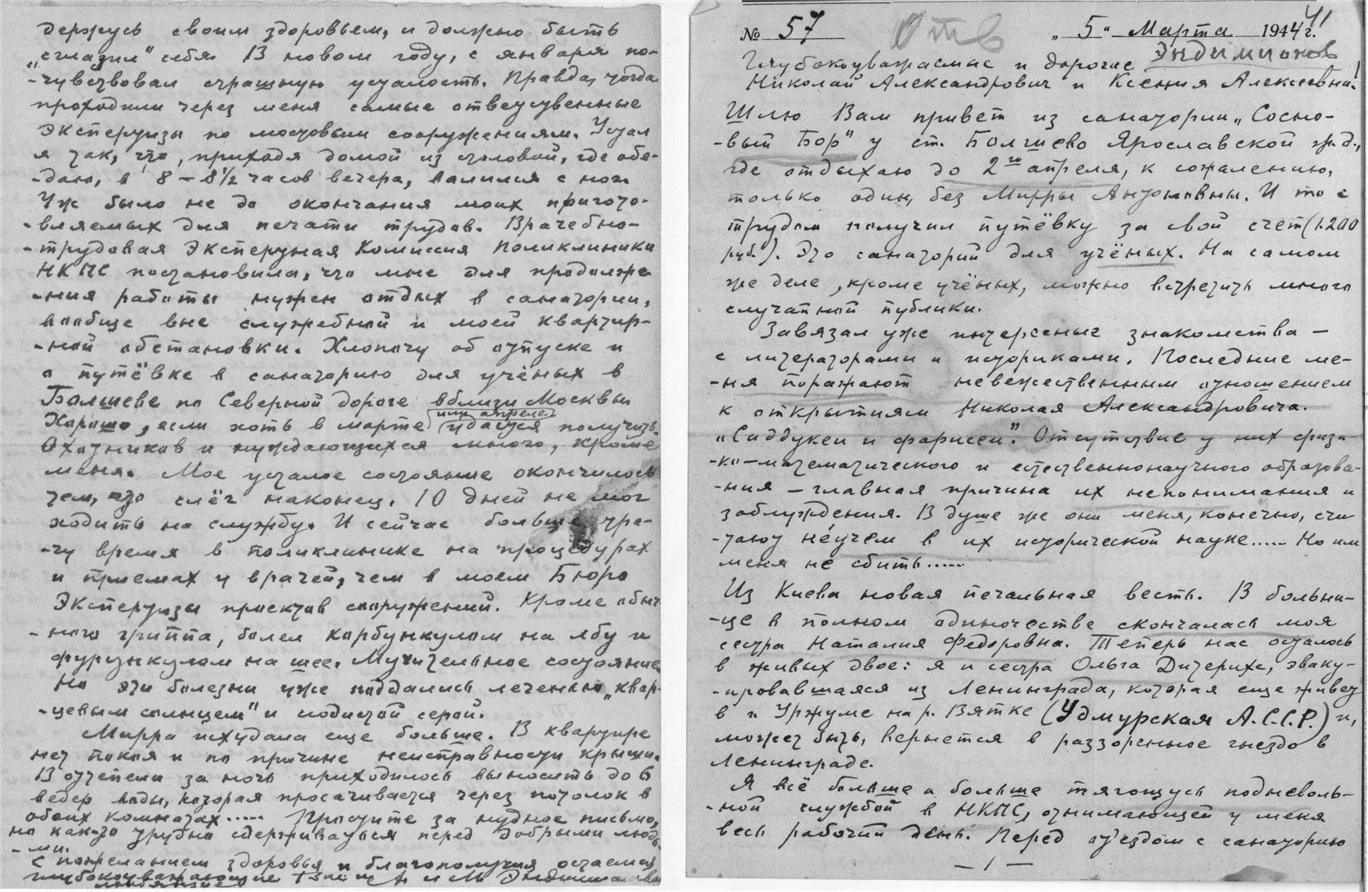 держусь своим здоровьем, и должно быть
„сглазил" себя. В новом году, с января по-
-чувствовал страшную усталость. Правда, тогда
проходили через меня самые ответственные
экспертизы по мостовым сооружениям. Устал
я так, что, приходя домой из столовой, где обе-
-даю, в 8 – 8½ часов вечера, валился с ног.
Уж было не до окончания моих пригото-
-вляемых для печати трудов. Врачебно-
-трудовая Экспертная Комиссия Поликлиники
НКПС постановила, что мне для продолже-
-ния работы нужен отдых в санатории,
вообще вне служебной и моей квартир-
-ной обстановки. Хлопочу об отпуске и
о путёвке в санаторию для учёных в
Болшеве по Северной дороге вблизи Москвы
Хорошо, если хоть в марте удастся получить.
или апреле
Охотников и нуждающихся много, кроме
меня. Мое усталое состояние окончилось
тем, что слёг наконец. 10 дней не мог
ходить на службу. И сейчас больше тра-
-чу время в поликлинике на процедурах
и приемах у врачей, чем в моем Бюро
Экспертизы проектов сооружений. Кроме обыч
-ного гриппа, болел карбункулом на лбу и
фурункулом на шее. Мучительное состояние
Но эти болезни уже поддались лечению „квар-
-цевым солнцем" и
Мирра исхудала еще больше. В квартире
нет покоя и по причине неисправности крыши.
В оттепели за ночь приходилось выносить до 6
ведер воды, которая просачивается через потолок в
обоих комнатах..... Простите за нудное письмо,
но как-то трудно сдерживаться перед добрыми людь-
-ми.
С пожеланием здоровья и благополучия остаемся
глубокоуважающие
№ 57 Отв „5" Марта 1944 г. 41
Эндимионов
Глубокоуважаемые и дорогие
Николай Александрович и Ксения Алексеевна!
Шлю Вам привет из санатории „Сосно-
-вый Бор" у ст. Болшево Ярославской ж.д.,
где отдыхаю до 2го апреля, к сожалению,
только один, без Мирры Антоновны. И то с
трудом получил путёвку за свой счет (1200
руб.). Это санаторий для учёных. На самом
же деле, кроме учёных, можно встретить много
случайной публики.
Завязал уже интересные знакомства –
с литераторами и историками. Последние ме-
-ня поражают невежественным отношением
к открытиям Николая Александровича.
„Саддукеи и фарисеи". Отсутствие у них физи
-ко-математического и естественнонаучного образова-
-ния – главная причина их непонимания и
заблуждения. В душе же они меня, конечно, счи
-тают неучем в их исторической науке..... Но им
меня не сбить.....
Из Киева новая печальная весть. В больни-
-це в полном одиночестве скончалась моя
сестра Наталия Федоровна. Теперь нас осталось
в живых двое: я и сестра Ольга Дитерихс, эваку-
-ировавшаяся из Ленинграда, которая еще живет
в г. Уржуме на р. Вятке (Удмурская А.С.С.Р.) и,
может быть, вернется в разоренное гнездо в
Ленинграде.
Я всё больше и больше тягощусь подневоль-
-ной службой в НКПС, отнимающей у меня
весь рабочий день. Перед отъездом с санаторию
– 1 –